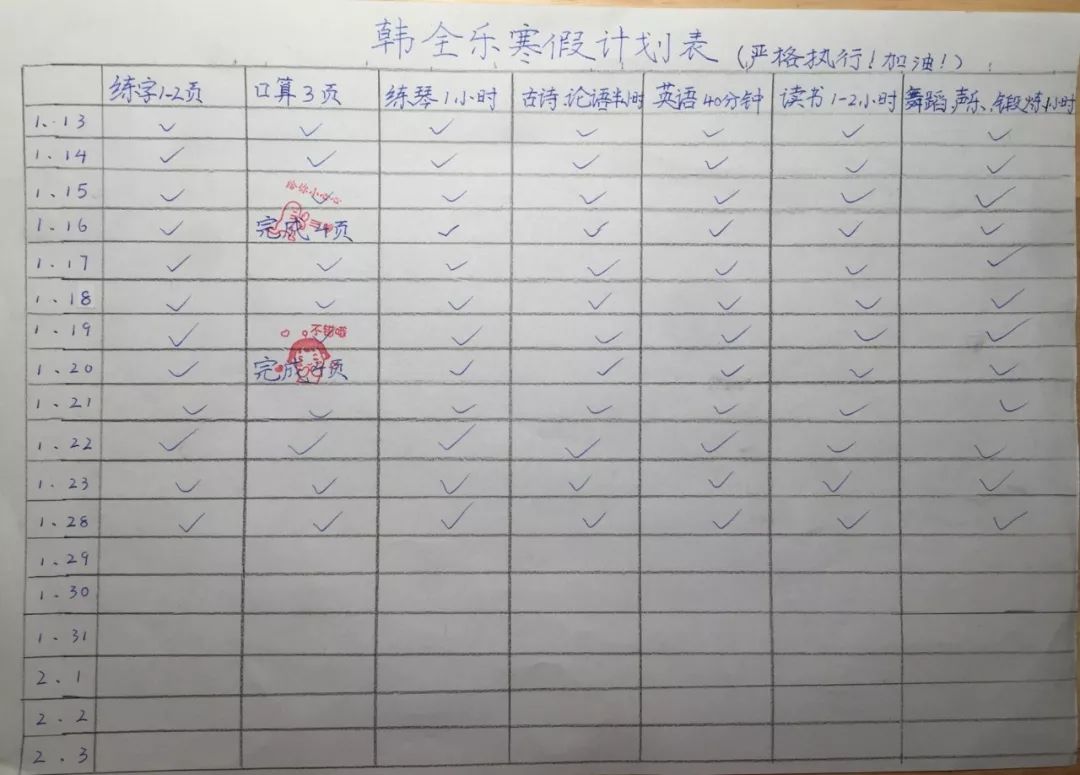 韩全乐寒假计划表 (严格执行!加油!)
练字1-2页 口算3页 练琴1小时 古诗、论语半小时 英语40分钟 读书1-2小时 舞蹈、声乐、锻炼1小时
1.13 ✓ ✓ ✓ ✓ ✓ ✓ ✓
1.14 ✓ ✓ ✓ ✓ ✓ ✓ ✓
给你小心心
1.15 ✓ ✓ ✓ ✓ ✓ ✓ ✓
1.16 ✓ 完成4页 ✓ ✓ ✓ ✓ ✓
1.17 ✓ ✓ ✓ ✓ ✓ ✓ ✓
1.18 ✓ ✓ ✓ ✓ ✓ ✓ ✓
不错哦
1.19 ✓ ✓ ✓ ✓ ✓ ✓
1.20 ✓ 完成4页 ✓ ✓ ✓ ✓ ✓
1.21 ✓ ✓ ✓ ✓ ✓ ✓ ✓
1.22 ✓ ✓ ✓ ✓ ✓ ✓ ✓
1.23 ✓ ✓ ✓ ✓ ✓ ✓ ✓
1.28 ✓ ✓ ✓ ✓ ✓ ✓ ✓
1.29
1.30
1.31
2.1
2.2
2.3